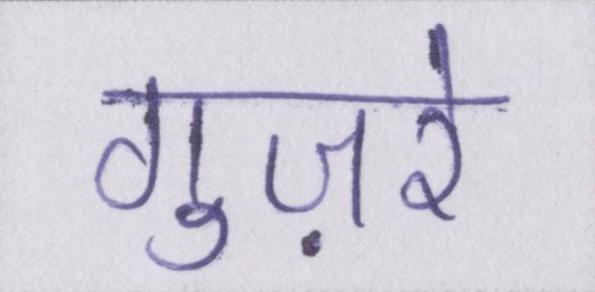 गुज़रे